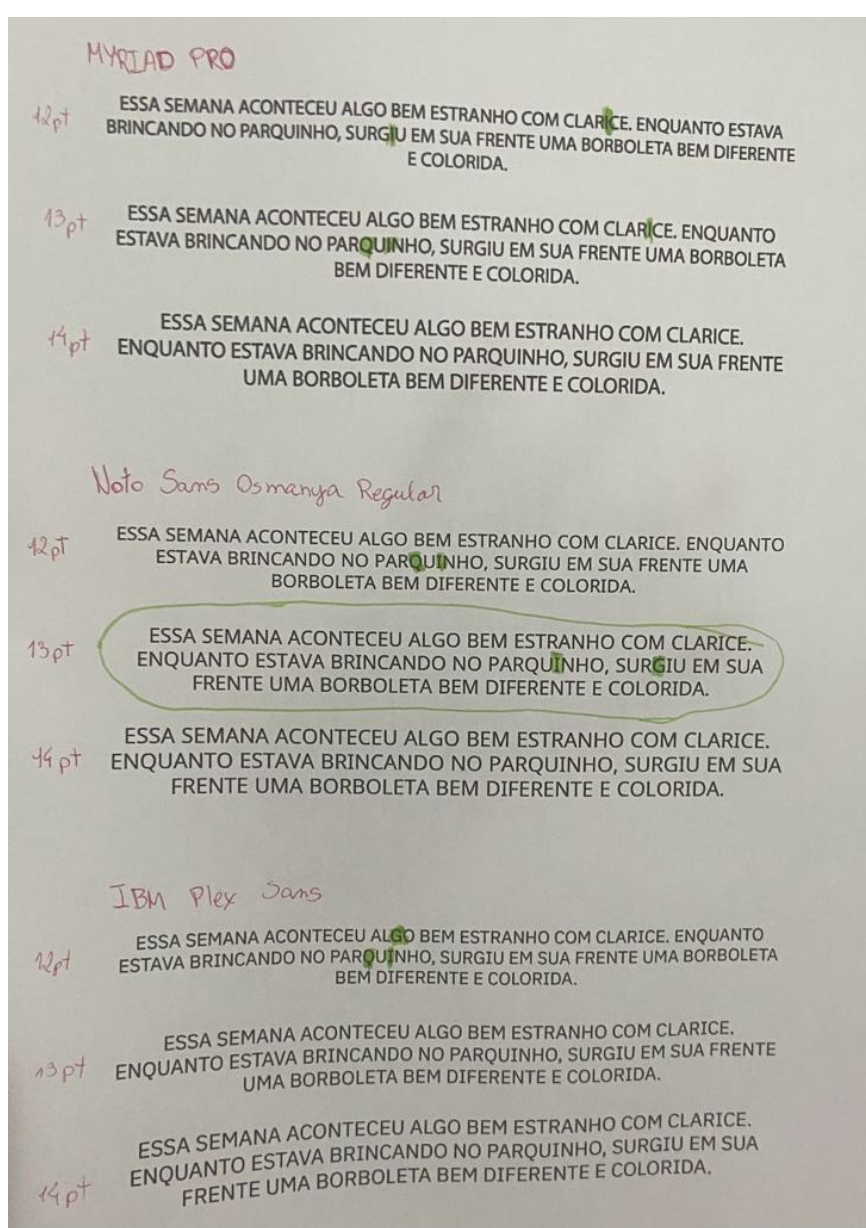 MYRIAD PRO
12pt
ESSA SEMANA ACONTECEU ALGO BEM ESTRANHO COM CLARICE. ENQUANTO ESTAVA
BRINCANDO NO PARQUINHO, SURGIU EM SUA FRENTE UMA BORBOLETA BEM DIFERENTE
E COLORIDA.
13pt
ESSA SEMANA ACONTECEU ALGO BEM ESTRANHO COM CLARICE. ENQUANTO
ESTAVA BRINCANDO NO PARQUINHO, SURGIU EM SUA FRENTE UMA BORBOLETA
BEM DIFERENTE E COLORIDA.
14pt
ESSA SEMANA ACONTECEU ALGO BEM ESTRANHO COM CLARICE.
ENQUANTO ESTAVA BRINCANDO NO PARQUINHO, SURGIU EM SUA FRENTE
UMA BORBOLETA BEM DIFERENTE E COLORIDA.
Noto Sans Osmanya Regular
12pt
ESSA SEMANA ACONTECEU ALGO BEM ESTRANHO COM CLARICE. ENQUANTO
ESTAVA BRINCANDO NO PARQUINHO, SURGIU EM SUA FRENTE UMA
BORBOLETA BEM DIFERENTE E COLORIDA.
13pt
ESSA SEMANA ACONTECEU ALGO BEM ESTRANHO COM CLARICE.
ENQUANTO ESTAVA BRINCANDO NO PARQUINHO, SURGIU EM SUA
FRENTE UMA BORBOLETA BEM DIFERENTE E COLORIDA.
14pt
ESSA SEMANA ACONTECEU ALGO BEM ESTRANHO COM CLARICE.
ENQUANTO ESTAVA BRINCANDO NO PARQUINHO, SURGIU EM SUA
FRENTE UMA BORBOLETA BEM DIFERENTE E COLORIDA.
IBM Plex Sans
12pt
ESSA SEMANA ACONTECEU ALGO BEM ESTRANHO COM CLARICE. ENQUANTO
ESTAVA BRINCANDO NO PARQUINHO, SURGIU EM SUA FRENTE UMA BORBOLETA
BEM DIFERENTE E COLORIDA.
13pt
ESSA SEMANA ACONTECEU ALGO BEM ESTRANHO COM CLARICE.
ENQUANTO ESTAVA BRINCANDO NO PARQUINHO, SURGIU EM SUA FRENTE
UMA BORBOLETA BEM DIFERENTE E COLORIDA.
14pt
ESSA SEMANA ACONTECEU ALGO BEM ESTRANHO COM CLARICE.
ENQUANTO ESTAVA BRINCANDO NO PARQUINHO, SURGIU EM SUA
FRENTE UMA BORBOLETA BEM DIFERENTE E COLORIDA.